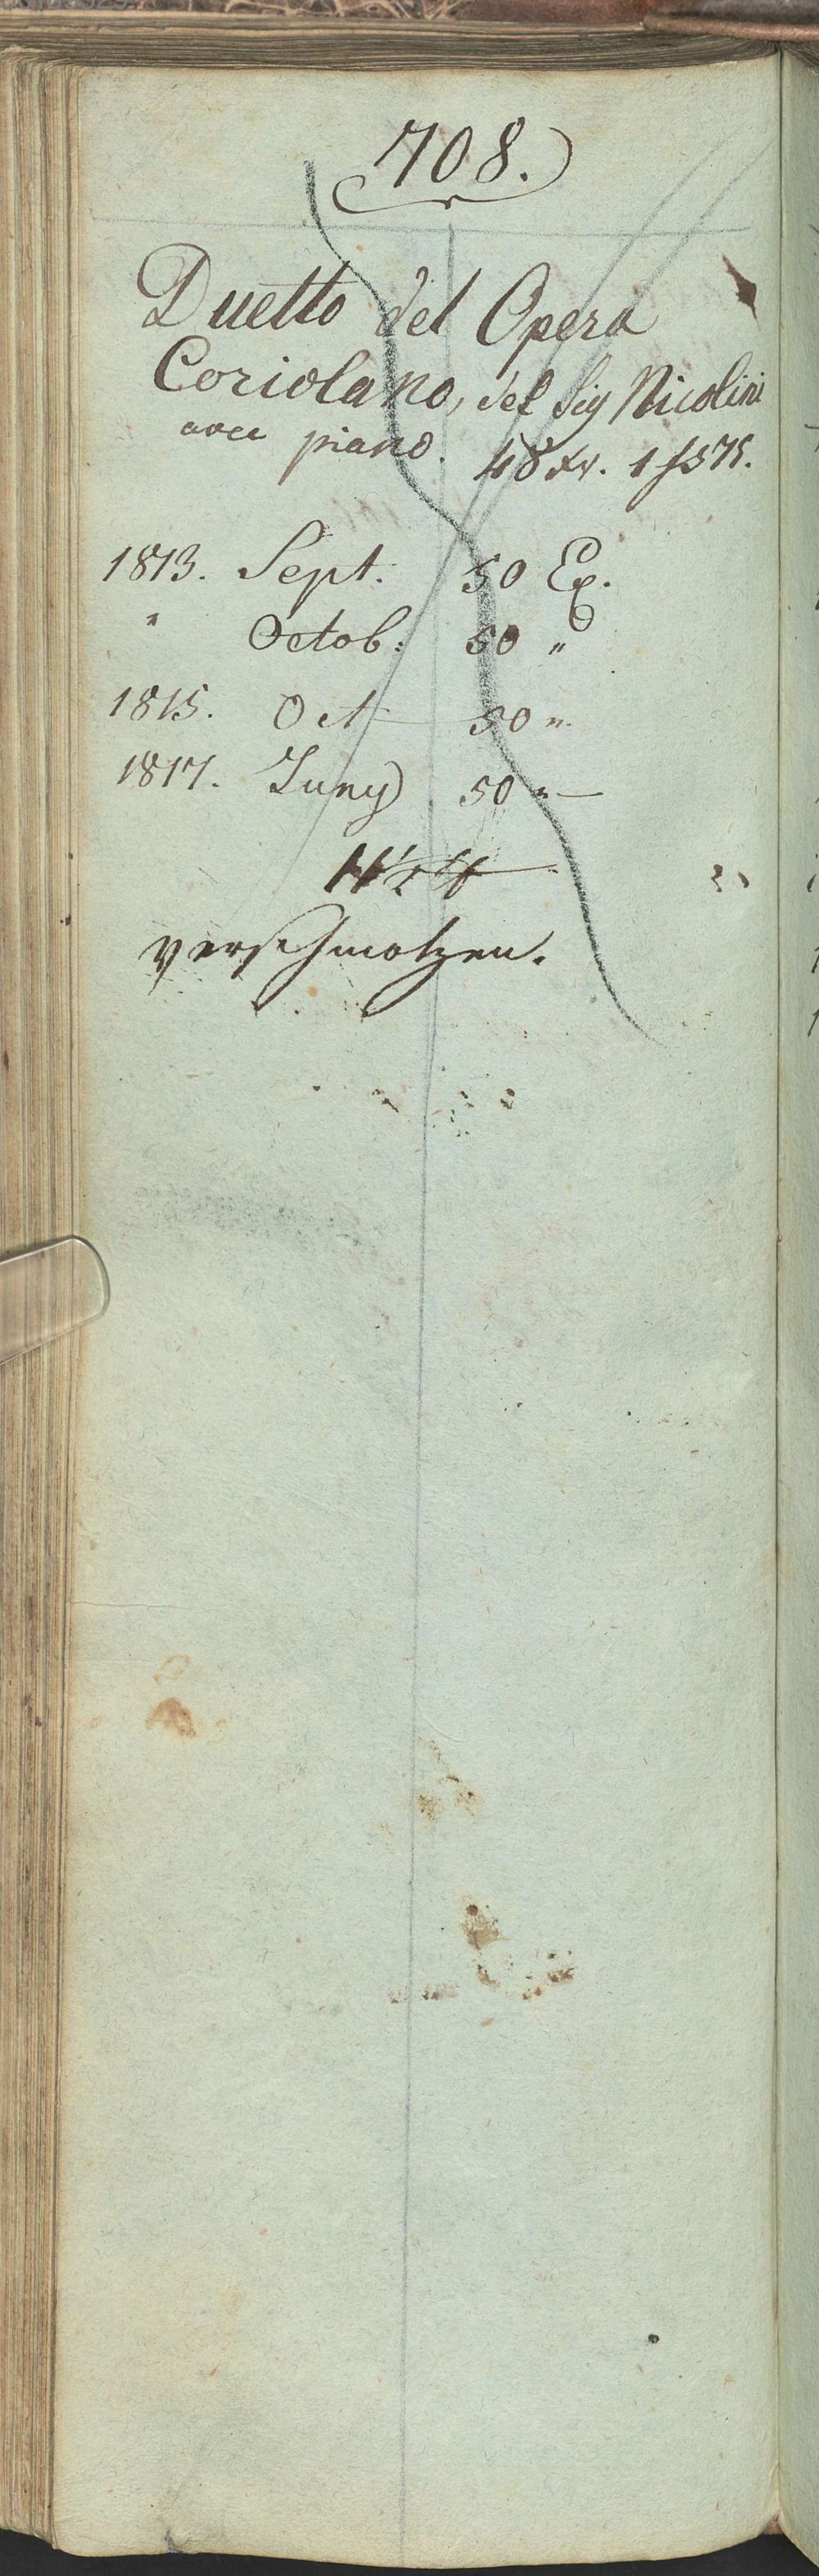 708.
Duetto del Opera
Coriolano, del Sig Nicolini
avec piano. 48 xr. 1 f 75.
1813. Sept: 50 Ex.
" Octob: 50 "
1815. Oct 50 "
1817. Juny 50 " —
verschmolzen.